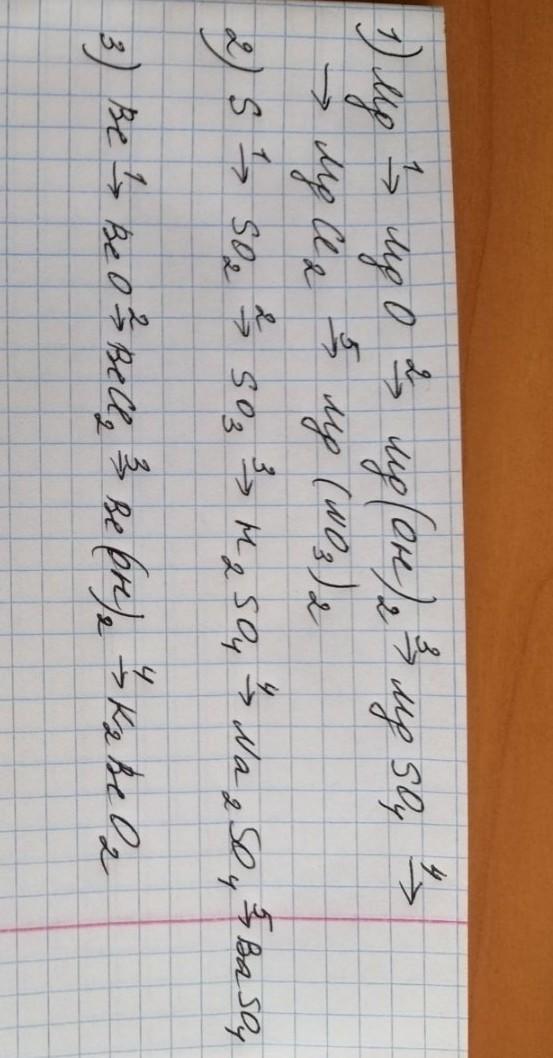 1) Mg →¹ MgO →² Mg(OH)₂ →³ MgSO₄ →⁴
→ MgCl₂ →⁵ Mg(NO₃)₂
2) S →¹ SO₂ →² SO₃ →³ H₂SO₄ →⁴ Na₂SO₄ →⁵ BaSO₄
3) Be →¹ BeO →² BeCl₂ →³ Be(OH)₂ →⁴ K₂BeO₂